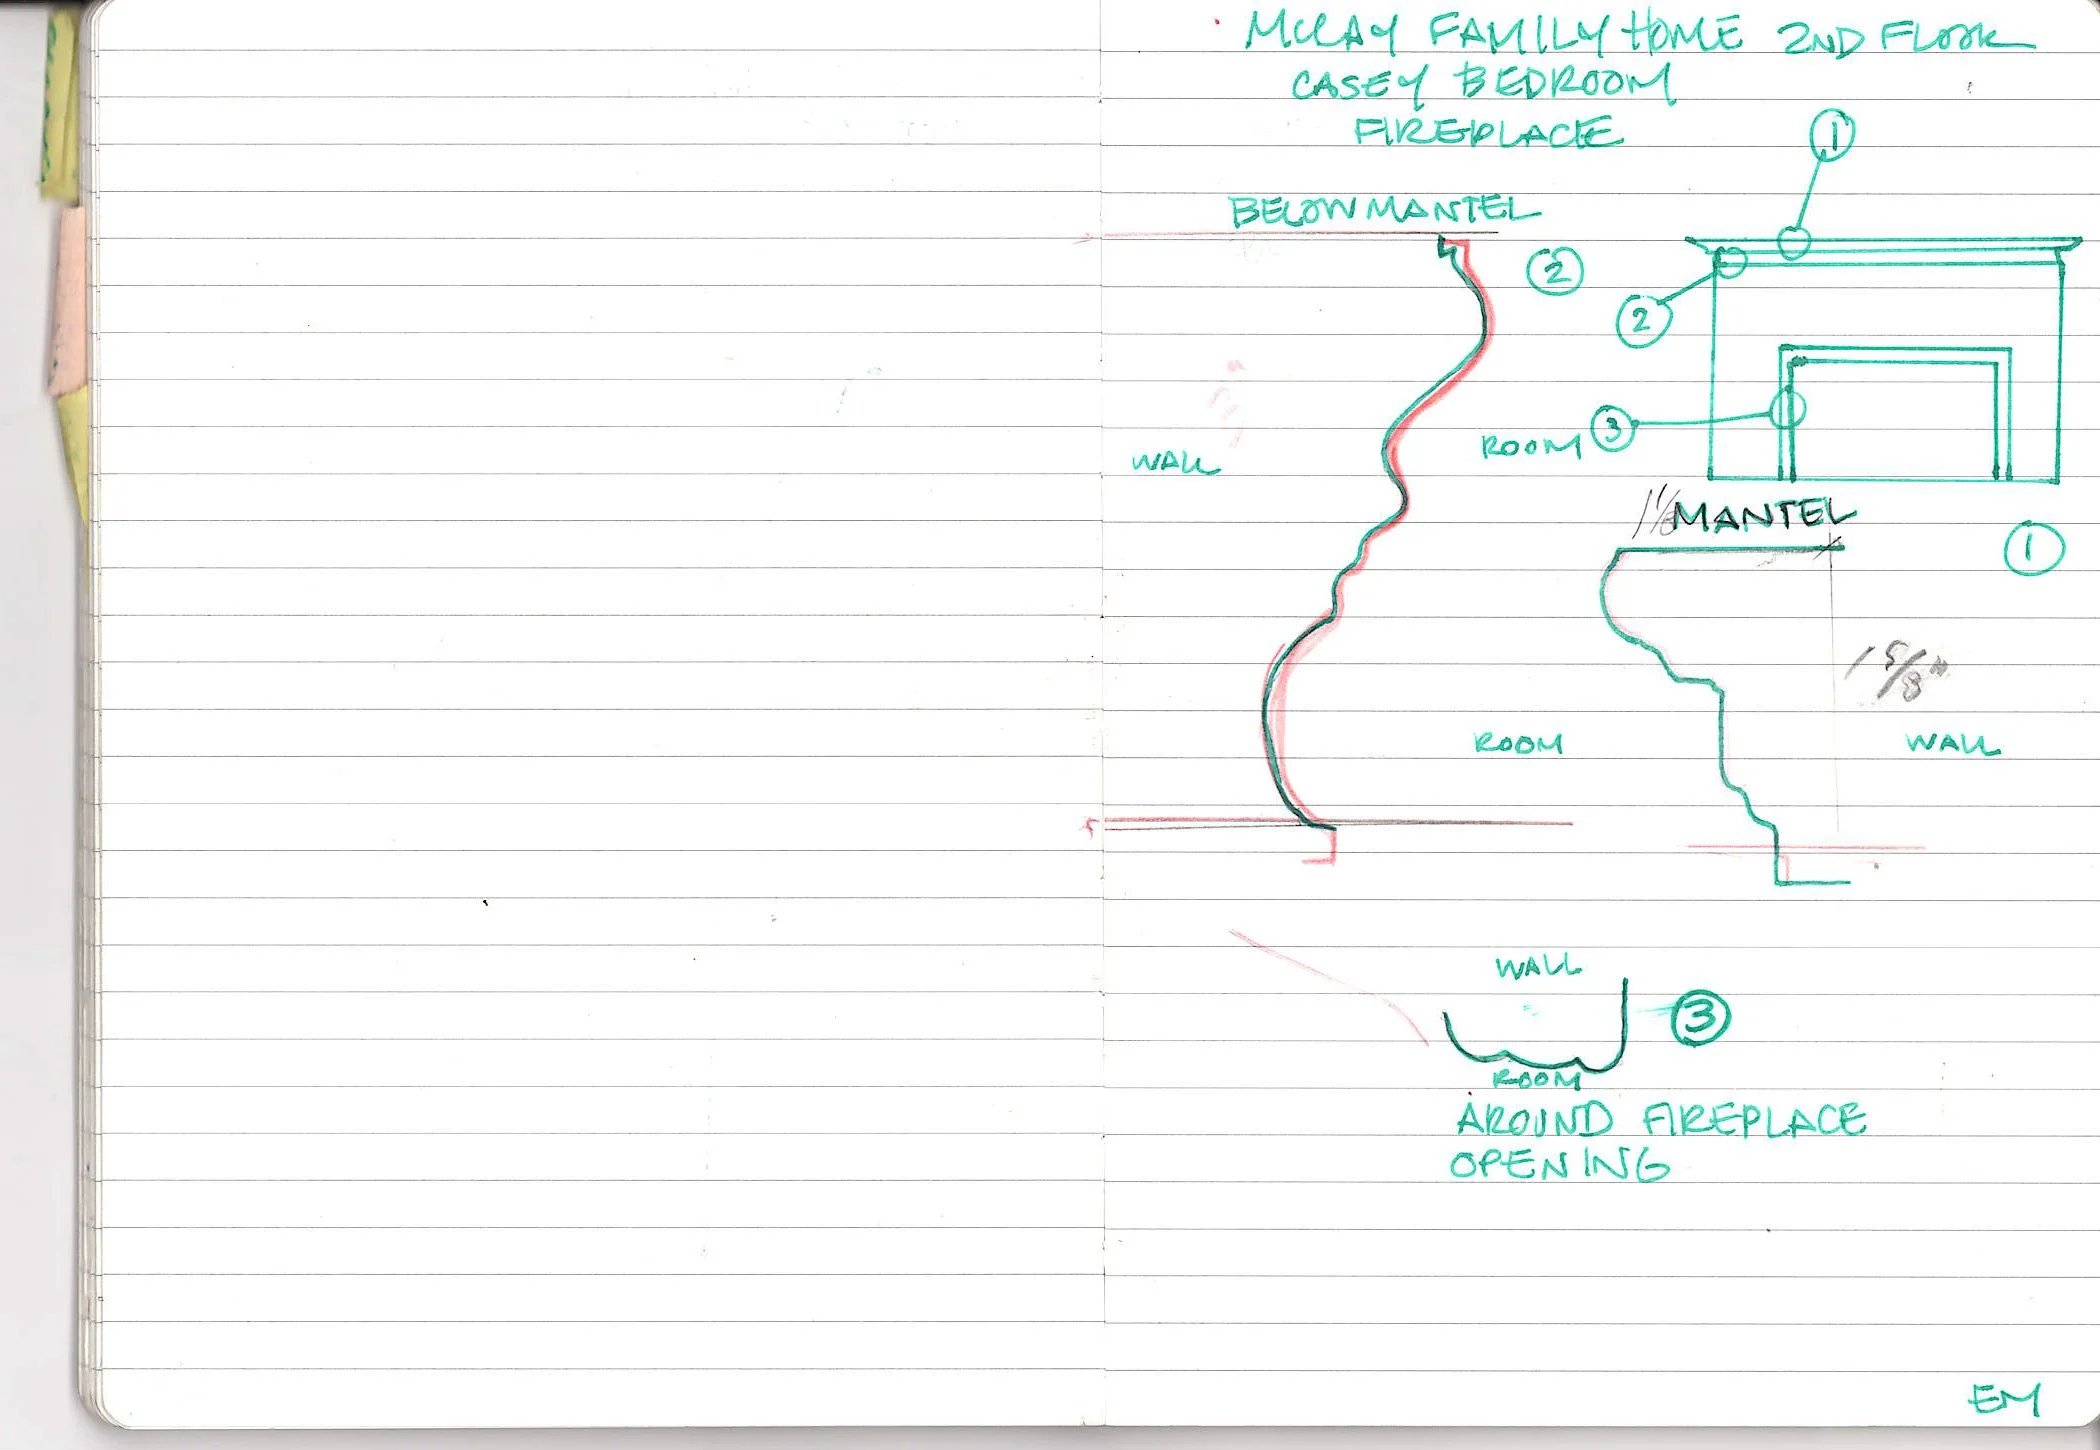 McCRAY FAMILY HOME 2ND FLOOR
CASEY BEDROOM
FIREPLACE
1
BELOW MANTEL
2
2
3"
WALL
ROOM
3
1 1/8
MANTEL
1
1 5/8"
ROOM
WALL
WALL
3
ROOM
AROUND FIREPLACE
OPENING
EM